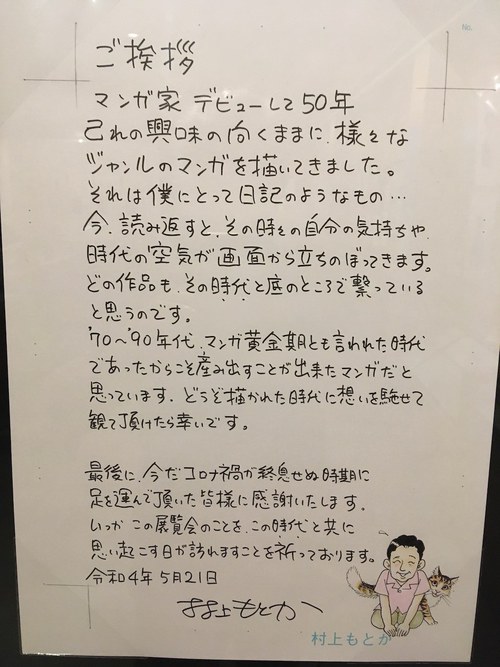 No.
ご挨拶
マンガ家 デビューして50年
己れの興味の向くままに、様々な
ジャンルのマンガを描いてきました。
それは僕にとって日記のようなもの…
今、読み返すと、その時々の自分の気持ちや、
時代の空気が画面から立ちのぼってきます。
どの作品も、その時代と底のところで繋っている
と思うのです。
'70〜'90年代、マンガ黄金期とも言われた時代
であったからこそ産み出すことが出来たマンガだと
思っています、どうぞ描かれた時代に想いを馳せて
観て頂けたら幸いです。
最後に、今だコロナ禍が終息せぬ時期に
足を運んで頂いた皆様に感謝いたします。
いつか この展覧会のことを、この時代と共に
思い起こす日が訪れますことを祈っております。
令和4年5月21日
村上もとか
村上もとか